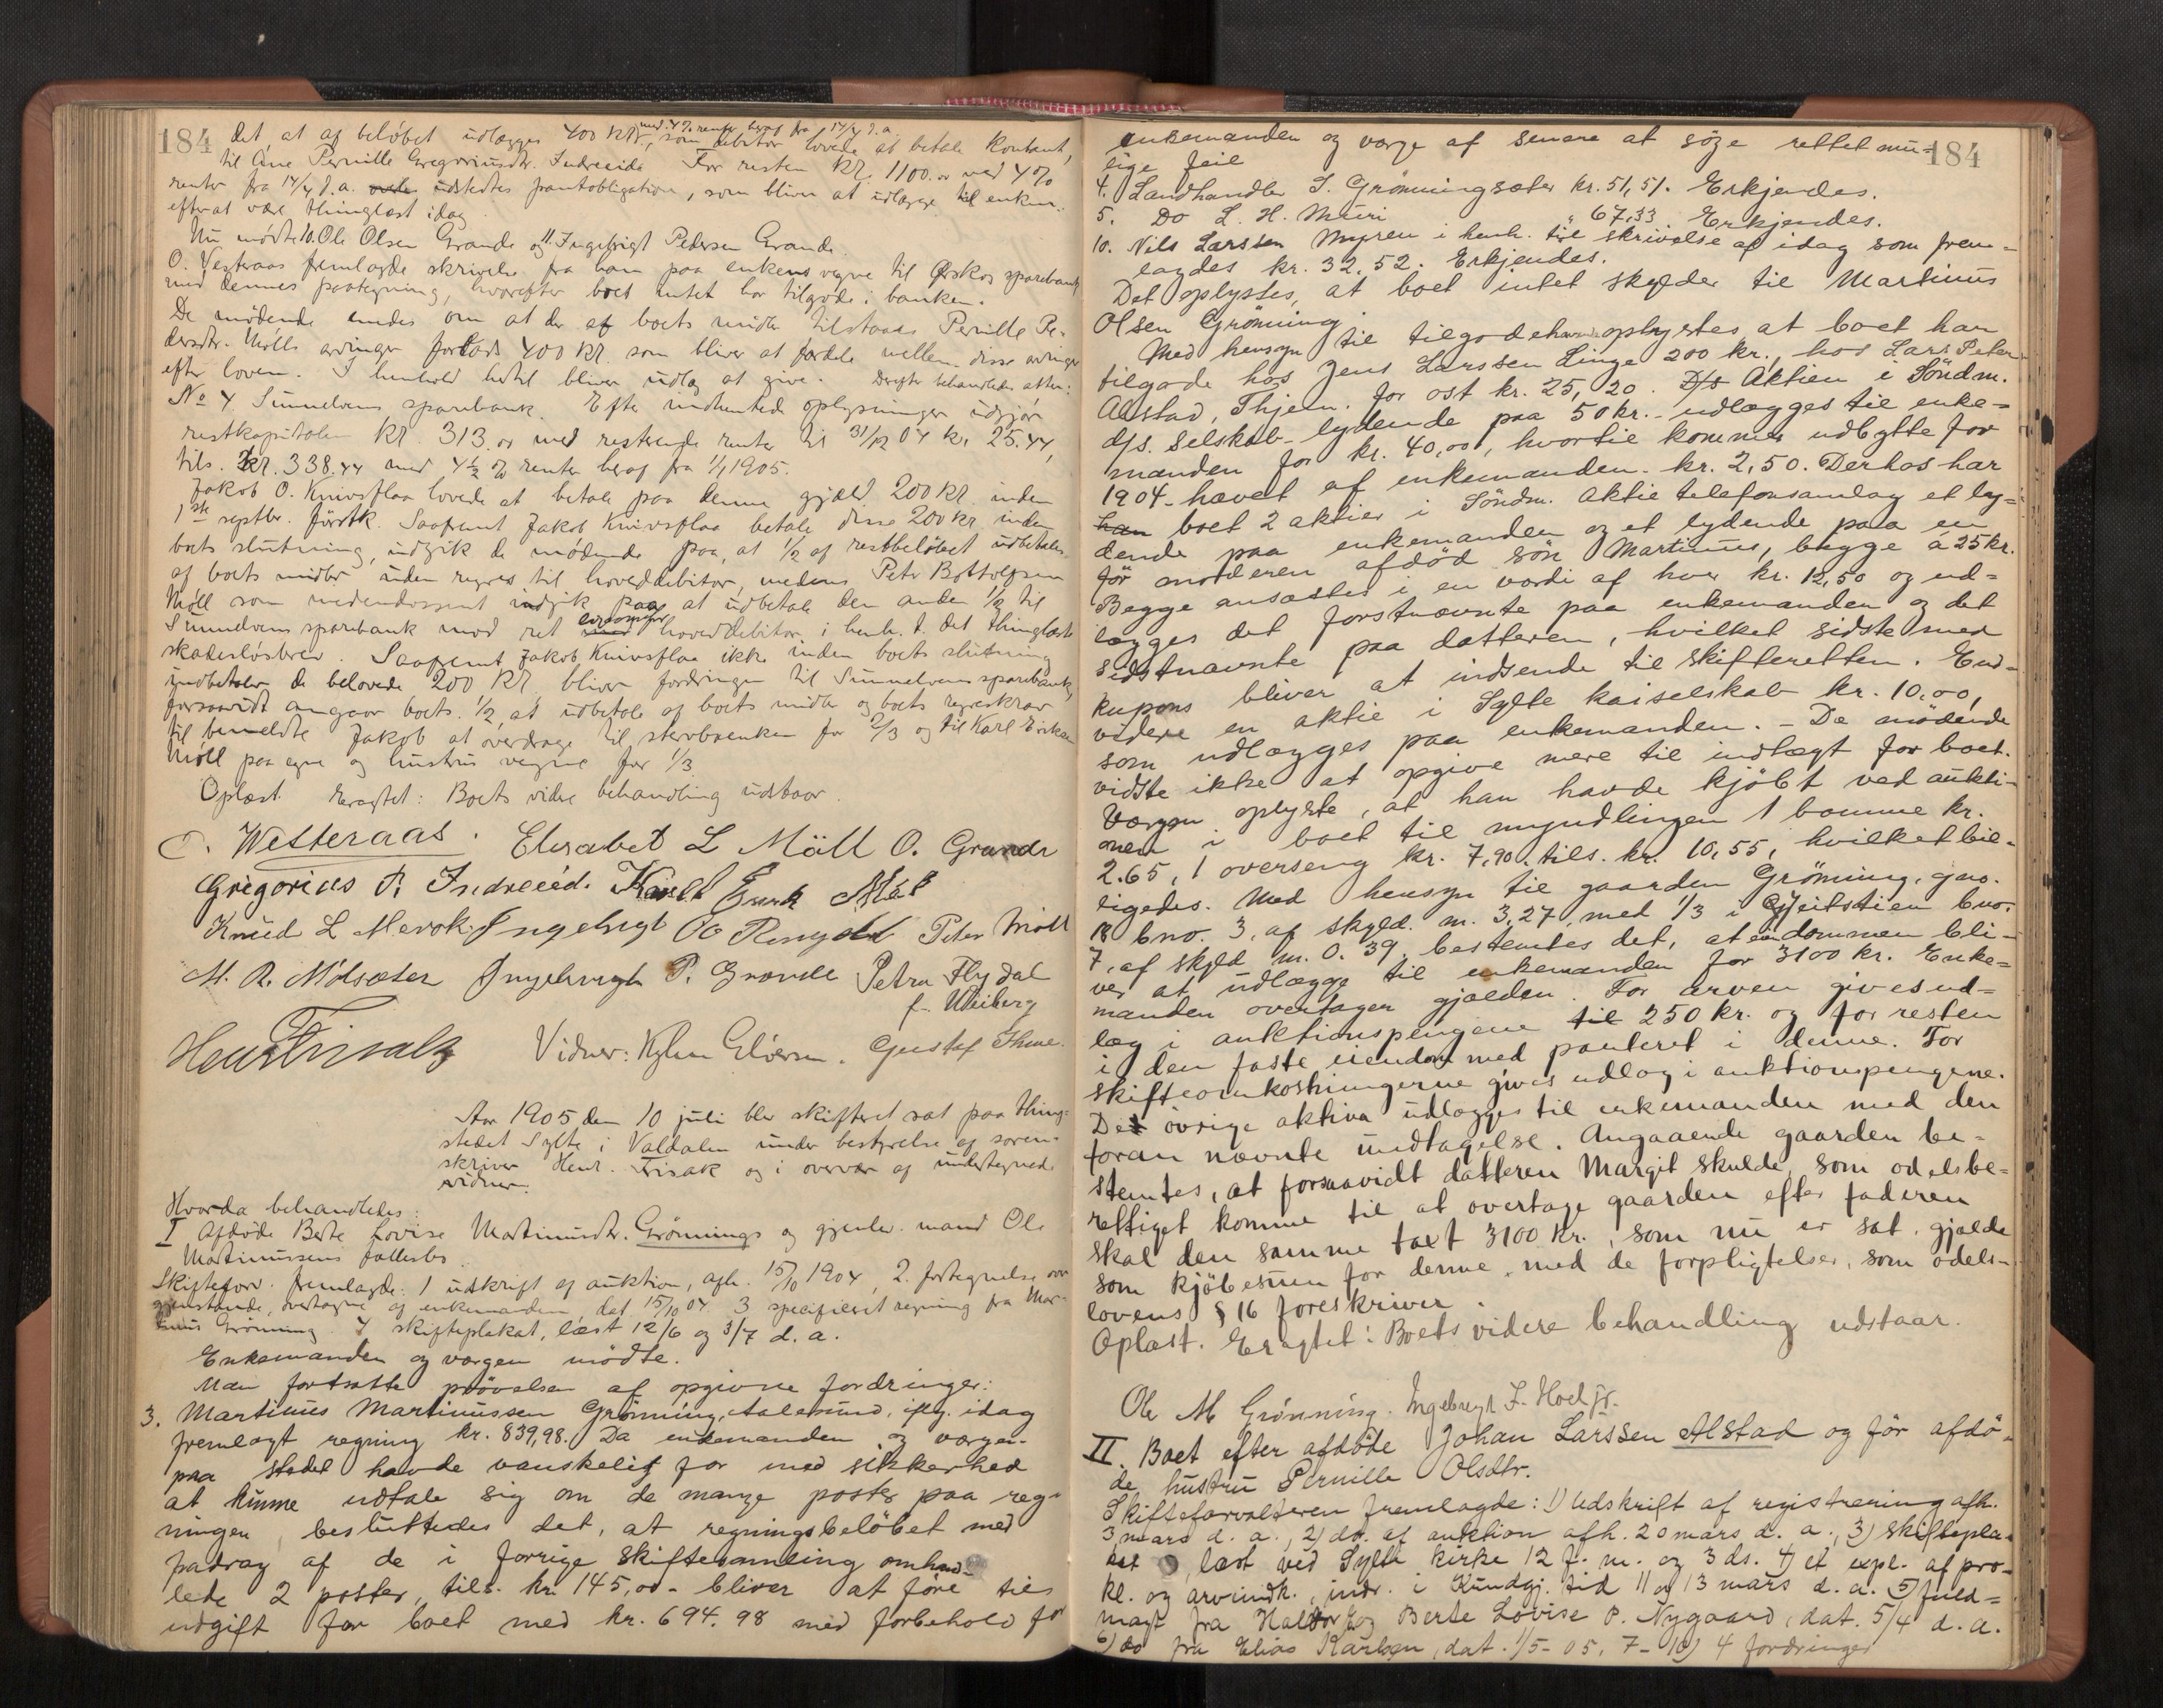 184
det, at af beløbet udlægges 400 kr., med 4% renter herag fra 14/4 d.a. som debitor lovede at betale kontant,
til Ane Pernille Gregoriusdtr. Indreeide. For resten kr. 1100.00 med 4%
renter fra 14/4 d.a. udstedtes pantobligation, som bliver at udlægge til enken
efterat være thinglæst idag.
Nu mødte 10. Ole Olsen Grande og 11. Ingebrigt Pedersen Grande.
O. Vesteraas fremlagde skrivelse fra ham paa enkens vegne til Ørskog sparebank
med dennes paategning, hvorefter boet intet har tilgode i banken.
De mødende enedes om at der af boets midler tilstaaes Pernille Pe-
dersdtr. Mölls arvinger forlods 400 kr. som bliver at fordele mellem disse arvinger
efter loven. I henhold hertil bliver udlæg at give. Derefter behandledes atter:
No 4 Sunnelvens sparebank. Efter indhentede oplysninger udgjør
restkapitalen kr. 313.00 med resterende renter til 31/12 04 kr. 25.44,
tils. kr. 338.44 med 4½ % renter herag fra 1/1 1905.
Jakob O. Knivsflaa lovede at betale paa denne gjæld 200 kr. inden
1ste septbr. förstk. Saafremt Jakob Knivsflaa betale disse 200 kr. inden
boets slutning, indgik de mødende paa, at 1/2 af restbeløbet udbetales
af boets midler uden regres til hoveddebitor, medens Peter Bottolfsen
Möll som medendossent indgik paa at udbetale den anden 1/2 til
Sunnelvens sparebank mod ret ligeoverfor hoveddebitor i henh. t. det thinglæste
skadesløsbrev. Saafremt Jakob Knivsflaa ikke inden boets slutning
indbetaler de belovede 200 kr. bliver fordringen til Sunnelvens sparebank,
forsaavidt angaar boets 1/2, at udbetale af boets midler og boets regreskrav
til bemeldte Jakob at overdrage til stervboenken for 2/3 og til Karl Eriksen
Möll paa egne og hustrus vegne for 1/3.
Oplæst. Eragtet: Boets videre behandling udstaar.
O. Westeraas. Elisabet L Möll O. Grande
Gregorius P. Indreeid. Karl Erik Möll
Knud L Merok. Ingebrigt Peter Möll
M. R. Mölsæter Ingebrigt P. Grande Petra Flydal
f. Wiiberg
Henr Frisak Vidner: Gustaf Thue.
Aar 1905 den 10 juli blev skifteret sat paa thing-
stedet Sylte i Valdalen under bestyrelse af soren-
skriver Henr. Frisak og i overvær af undertegnede
vidner.
Hvorda behandledes:
I Afdøde Berte Lovise Martinusdtr. Grønnings og gjenlev. mand Ole
Martinussens fællesbo.
Skifteforv. fremlagde: 1 udskrift af auktion, afh. 15/10 1904, 2. fortegnelse over
gjenstande, overtagne af enkemanden, dat. 15/10 04. 3 specificeret regning fra Mar-
tinus Grønning. 4 skifteplakat, læst 12/6 og 3/7 d. a.
Enkemanden og værgen mödte.
Man fortsatte prövelsen af opgivne fordringer:
3. Martinus Martinussen Grönning, Aalesund, iflg. idag
fremlagt regning kr. 839,98. Da enkemanden og værgen
paa stedet havde vanskelig for med sikkerhed
at kunne udtale sig om de mange poster paa reg-
ningen, besluttedes det, at regningsbeløbet med
fradrag af de i forrige skiftesamling omhand-
lede 2 poster, tils. kr. 145,00 - bliver at före til
udgift for boet med kr. 694.98 med forbehold for
184
enkemanden og værge af senere at söge rettet mu-
lige feil
4. Landhandler S. Grönningsæter kr. 51,51. Erkjendes.
5. Do L. H. Muri " 67,33. Erkjendes.
10. Nils Larssen Myren i henh. til skrivelse af idag som frem-
lagdes kr. 32.52. Erkjendes.
Det oplystes, at boet intet skylder til Martinus
Olsen Grönning.
Med hensyn til tilgodehavende oplystes, at boet har
tilgode hos Jens Larssen Linge 200 kr., hos Lars Peter
Alstad, Thjem. for ost kr. 25,20. D/s Aktien i Söndm.
d/s. selskab - lydende paa 50 kr. - udlægges til enke-
manden for kr. 40,00, hvortil kommer udbytte for
1904 - hævet af enkemanden - kr. 2,50. Derhos har
boet 2 aktier i Söndm. Aktie telefonsamlag et ly-
dende paa enkemanden og et lydende paa en
för moderen afdöd sön Martinus, begge á 25 kr.
Begge ansættes i en værdi af hver kr. 12,50 og ud-
lægges det forstnævnte paa enkemanden og det
sidstnævnte paa datteren, hvilket sidste med
kupons bliver at indsende til skifteretten. End-
videre en aktie i Sylte kaiselskab kr. 10,00,
som udlægges paa enkemanden. - De mødende
vidste ikke at opgive mere til indtægt for boet.
Værgen oplyste, at han havde kjöbt ved aukti-
nen i boet til myndlingen 1 bomme kr.
2.65, 1 overseng kr. 7,90. tils. kr. 10,55, hvilket bil-
ligedes. Med hensyn til gaarden Grönning, gno.
18 bno. 3, af skyld. m. 3,27, med 1/3 i Gjeitstien bno.
7, af skyld m. 0.39, bestemtes det, at eiendommen bli-
ver at udlægge til enkemanden for 3100 kr. Enke-
manden overtager gjælden. For arven gives ud-
læg i auktionspengene til 250 kr. og for resten
i den faste eiendom med panteret i denne. For
skifteomkostningerne gives udlæg i auktionspengene.
De övrige aktiva udlægges til enkemanden med den
foran nævnte undtagelse. Angaaende gaarden be-
stemtes, at forsaavidt datteren Margit skulde, som odelsbe-
rettiget komme til at overtage gaarden efter faderen
skal den samme taxt 3100 kr., som nu er sat, gjælde
som kjöbesum for denne, med de forpligtelser, som odels-
lovens § 16 foreskriver.
Oplæst. Eragtet: Boets videre behandling udstaar.
Ole M Grönning. Ingebregt L. Hoel jr.
II. Boet efter afdöde Johan Larssen Alstad og för afdö-
de hustru Pernille Olsdtr.
Skifteforvalteren fremlagde: 1) Udskrift af registrering afh.
3 mars d. a., 2) do. af auktion afh. 20 mars d. a., 3) skiftepla-
kat, læst ved Sylte kirke 12 f. m. og 3 ds. 4) et expl. af pro-
kl. og arvindk., indr. i Kundgj. tid 11 og 13 mars d. a. 5) fuld-
magt fra Haldor og Berte Lovise P. Nygaard, dat. 5/4 d. a.
6) do fra Elias Karlsen, dat. 1/5 - 05, 7 - 10) 4 fordringer